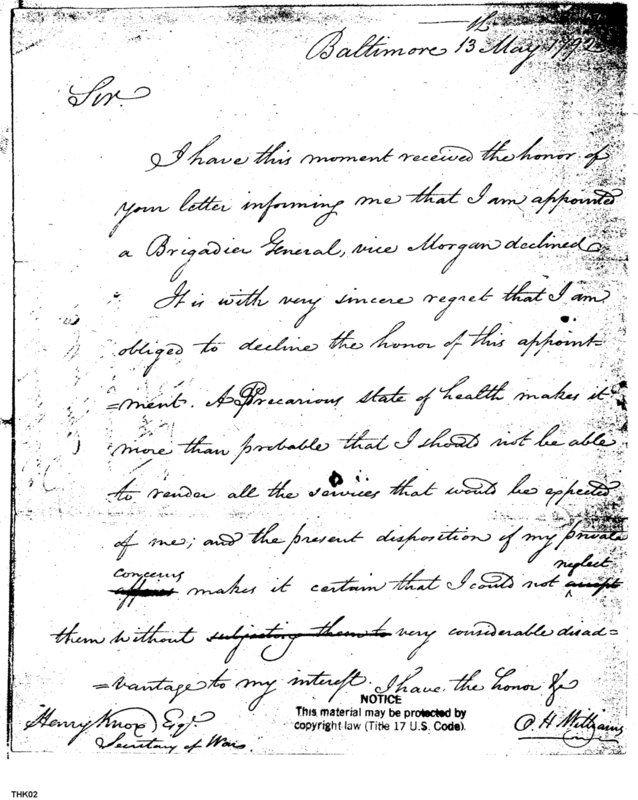 Baltimore 13th May 1792
Sir.
I have this moment received the honor of
your letter informing me that I am appointed
a Brigadier General, vice Morgan declined.
It is with very sincere regret that I am
obliged to decline the honor of this appoint=
=ment. A Precarious state of health makes it
more than probable that I should not be able
to render all the services that would be expected
of me; and the present disposition of my private
concerns neglect
affairs makes it certain that I could not accept
them without subjecting them to very considerable disad=
=vantage to my interest. I have the honor &c
NOTICE
This material may be protected by
copyright law (Title 17 U.S. Code).
Henry Knox Esqr.
Secretary of War
O. H. Williams
THK02